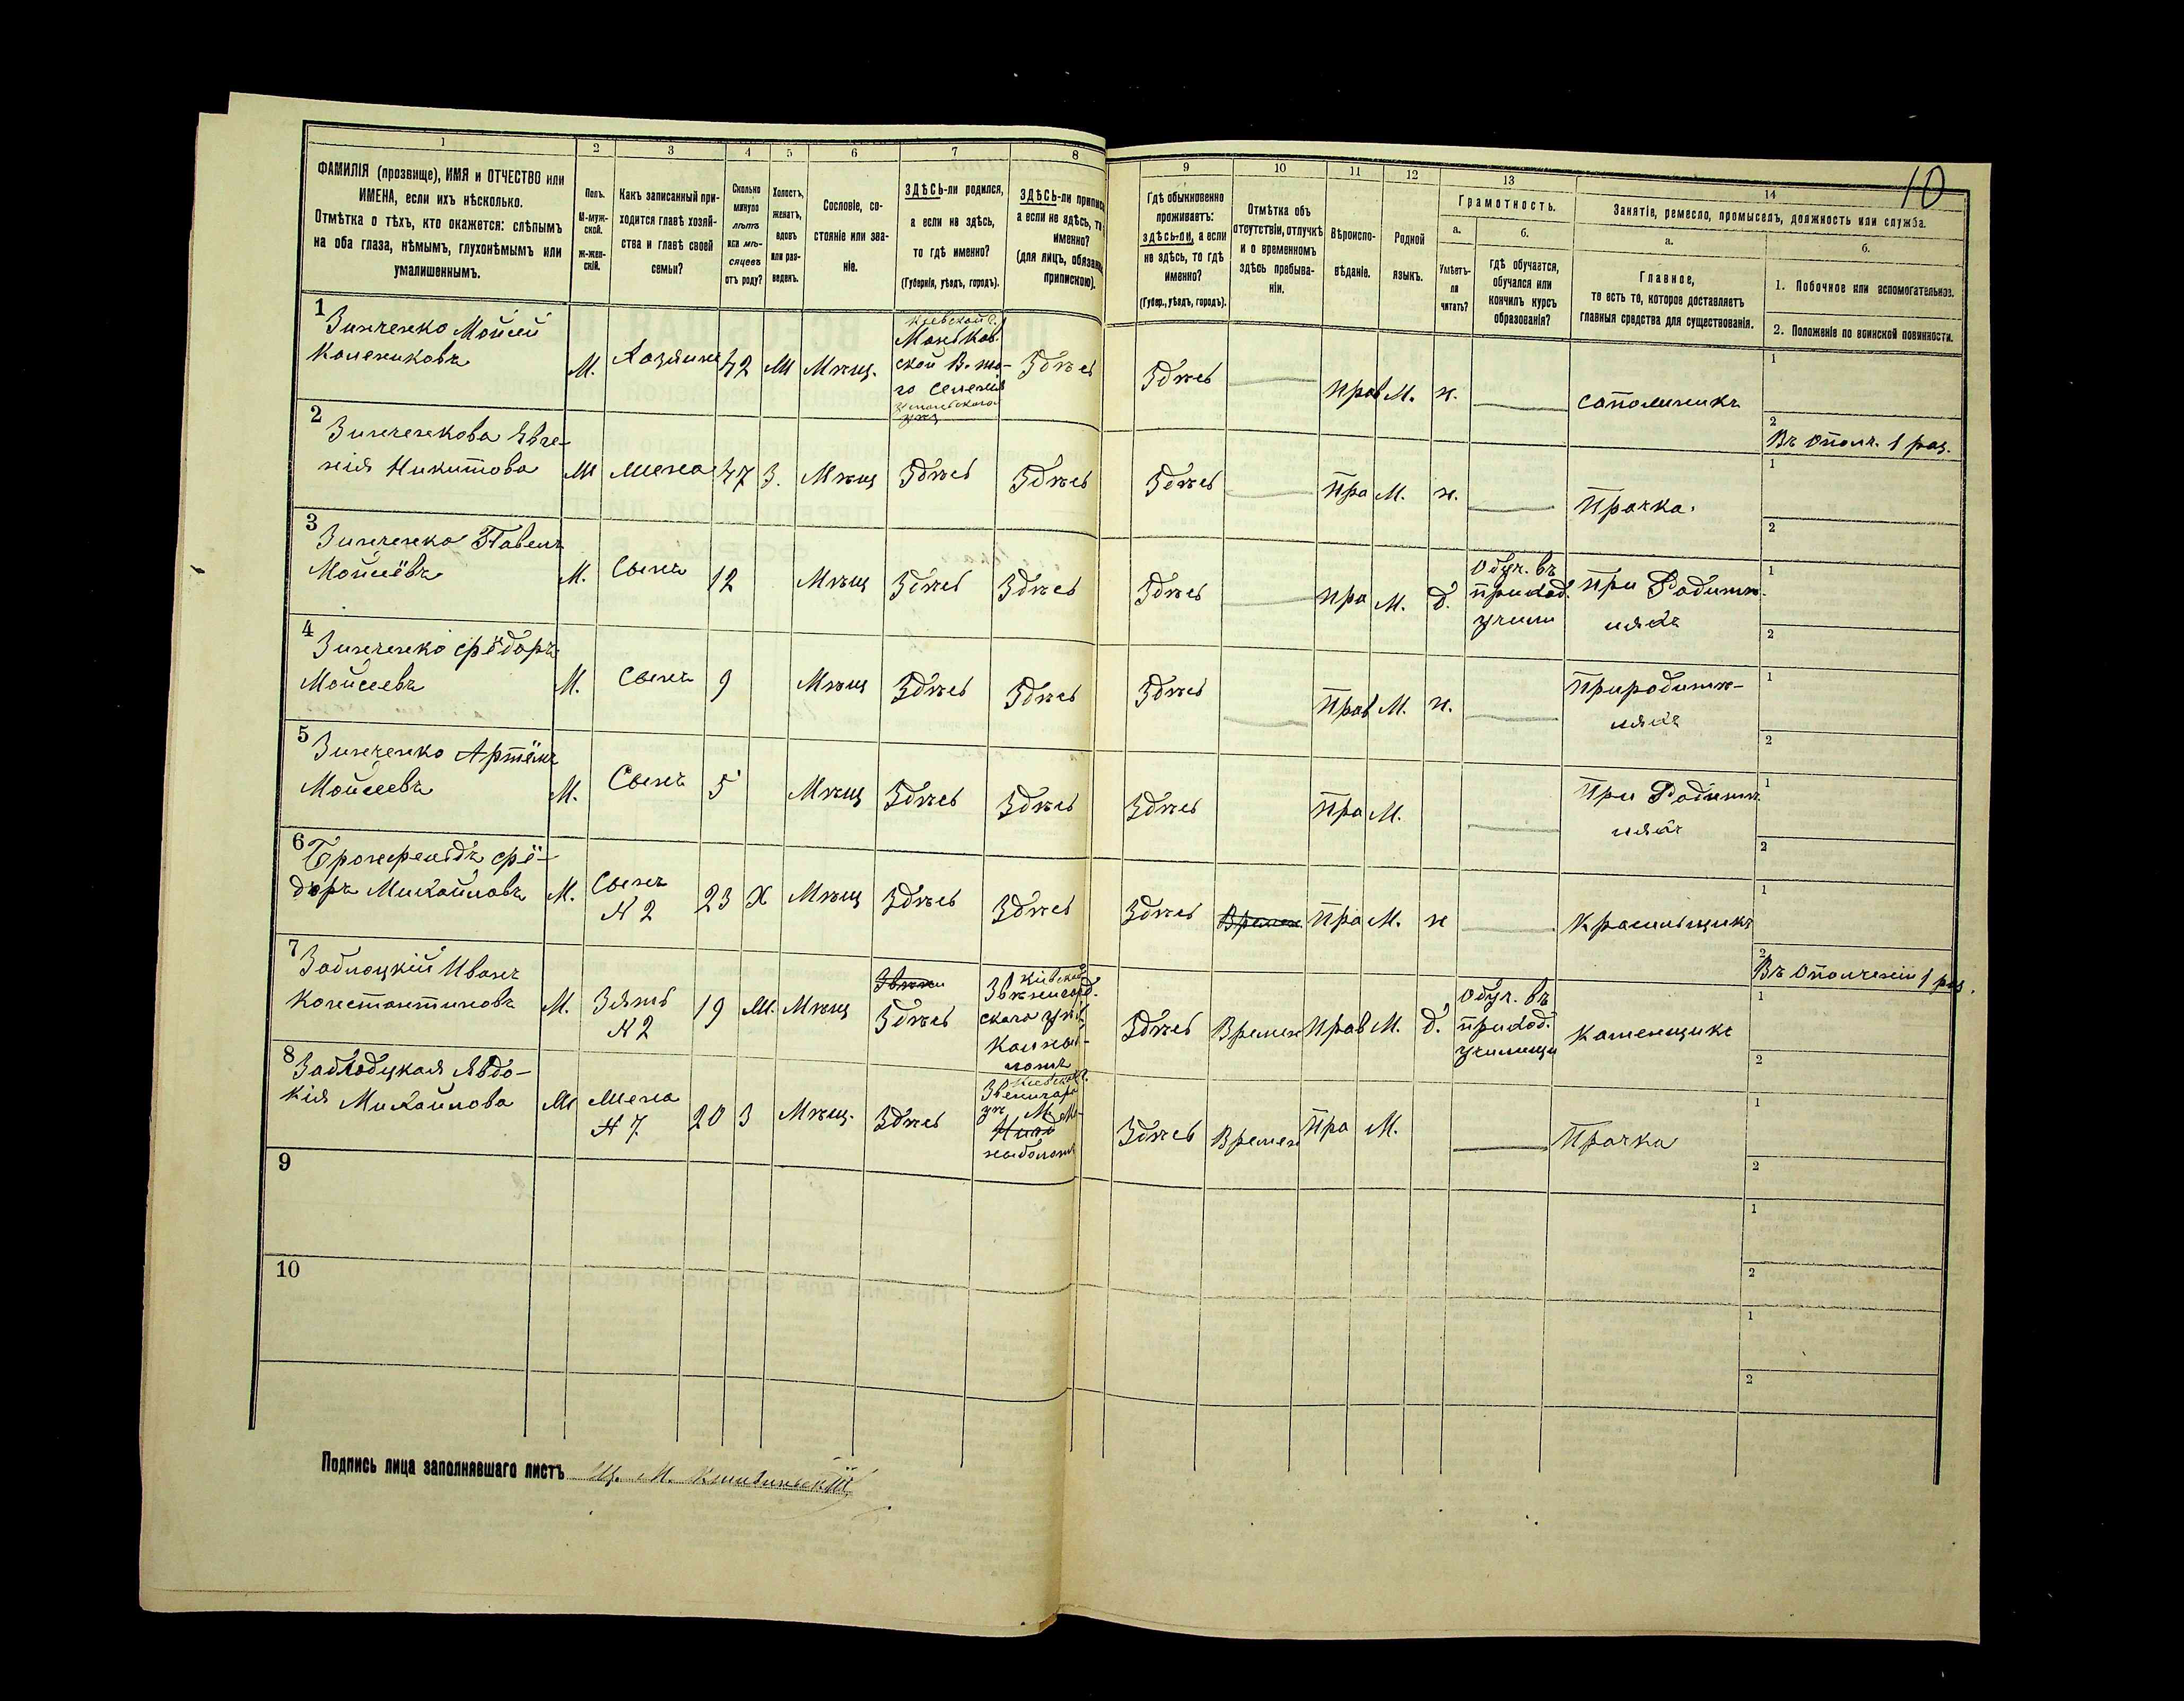 10
1 2 3 4 5 6 7 8 9 10 11 12 13 14
ФАМИЛІЯ (прозвище), ИМЯ и ОТЧЕСТВО или
ИМЕНА, если ихъ нѣсколько.
Отмѣтка о тѣхъ, кто окажется: слѣпымъ
на оба глаза, нѣмымъ, глухонѣмымъ или
умалишеннымъ.
Полъ.
М-муж-
ской.
Ж-жен-
скій.
Какъ записанный при-
ходится главѣ хозяй-
ства и главѣ своей
семьи?
Сколько
минуло
лѣтъ
или мѣ-
сяцевъ
отъ роду?
Холостъ,
женатъ,
вдовъ
или раз-
веденъ.
Сословіе, со-
стояніе или зва-
ніе.
ЗДѢСЬ-ли родился,
а если не здѣсь,
то гдѣ именно?
(Губернія, уѣздъ, городъ).
ЗДѢСЬ-ли
а если не здѣсь,
именно?
(для лицъ,
припискою).
Гдѣ обыкновенно
проживаетъ:
здѣсь-ли, а если
не здѣсь, то гдѣ
именно?
(Губер., уѣздъ, городъ).
Отмѣтка объ
отсутствіи, отлучкѣ
и о временномъ
здѣсь пребыва-
ніи.
Вѣроиспо-
вѣданіе.
Родной
языкъ.
Грамотность.
а.
Умѣетъ-
ли
читать?
б.
гдѣ обучается,
обучался или
кончилъ курсъ
образованія?
Занятіе, ремесло, промыселъ, должность или служба.
а.
Главное,
то есть то, которое доставляетъ
главныя средства для существованія.
б.
1. Побочное или вспомогательное.
2. Положеніе по воинской повинности.
1 Зинченко Мойсей
М. Хозяинъ 42 М Мѣщ.
Кіевской г.
Здѣсь Здѣсь прав М. н. сапожникъ
1
2 Въ Ополч. 1 раз.
2 Зинченкова Евге-
нія Никитова М жена 47 З. Мѣщ Здѣсь Здѣсь Здѣсь пра М. н. Прачка.
1
2
3 Зинченко Павелъ
Мойсеёвъ М. Сынъ 12 Мѣщ Здѣсь Здѣсь Здѣсь пра М. д.
Обуч. въ
приход.
учили
при Родите-
ляхъ
1
2
4 Зинченко Фёдоръ
Мойсеевъ М. Сынъ 9 Мѣщ Здѣсь Здѣсь Здѣсь Прав М. н.
Природите-
ляхъ
1
2
5 Зинченко Артёмъ
Мойсеевъ М. Сынъ 5 Мѣщ Здѣсь Здѣсь Здѣсь Пра М.
При Родите
ляхъ
1
2
6
Михайловъ М. Сынъ
N 2 23 Х Мѣщ Здѣсь Здѣсь Здѣсь Времен Пра М. н Красильщикъ
1
2 Въ Ополченіи 1 раз.
7 Заблоцкій Иванъ
Константиновъ М. Зять
N 2 19 М. Мѣщ Здѣсь
Кіевской
Здѣсь Времен Прав М. д.
Обуч. въ
приход.
училищи
Каменщикъ
1
2
8 Заблодцкая Явдо-
кія Михайлова М Жена
N 7 20 З Мѣщ. Здѣсь
Здѣсь Времен Пра М. Прачка
1
2
9
1
2
10
1
2
Подпись лица заполнявшаго листъ